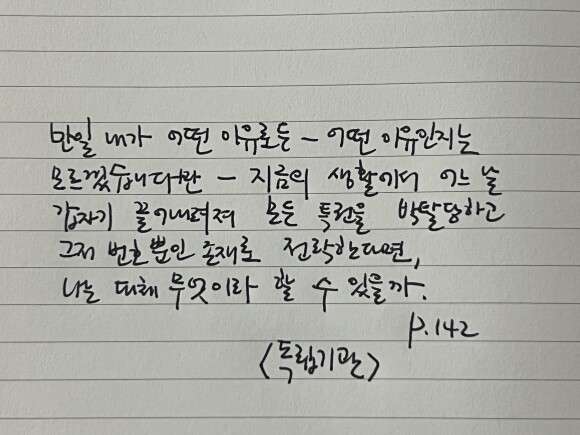 만일 내가 어떤 이유로든 – 어떤 이유인지는
모르겠습니다만 – 지금의 생활에서 어느 날
갑자기 끌어내려져 모든 특권을 박탈당하고
그저 번호뿐인 존재로 전락한다면,
나는 대체 무엇이라 할 수 있을까.
p.142
<독립기관>